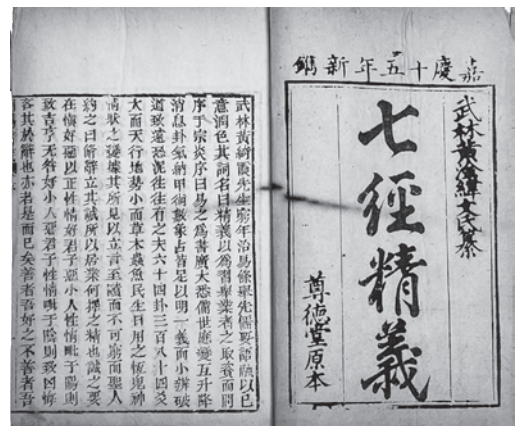 嘉慶十五年新鐫
武林黃淦緯文氏纂
七經精義
尊德堂原本
武林黃綺霞先生窮年治易條舉先儒要語融以已
意潤色其詞名曰精義以為習舉業者之取資而問
序于宗炎序曰易之為書廣大悉備世應變互升降
消息卦氣納甲術數象占皆足以明一義而小辨破
道致遠恐泥往往有之夫六十四卦三百八十四爻
大而天行地勢小而草木蟲魚民生日用之恆鬼神
情狀之變據其所見以立言至賾而不可窮而聖人
約之曰脩辭立其誠所以居業何擇之精也誠之要
在慎好惡以正性情好君子惡小人性情毗于陽則
致吉亨无咎好小人惡君子性情毗于陰則致凶悔
吝其於辭也亦若是而已矣善者吾好之不善者吾